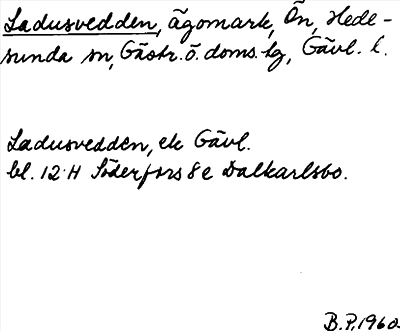 Ladusvedden, ägomark, Ön, Hede-
sunda sn, Gästr. ö. doms. lg, Gävl. l.
Ladusvedden, ek Gävl.
bl. 12 H Söderfors 8 e Dalkarlsbo.
B.P. 1960.